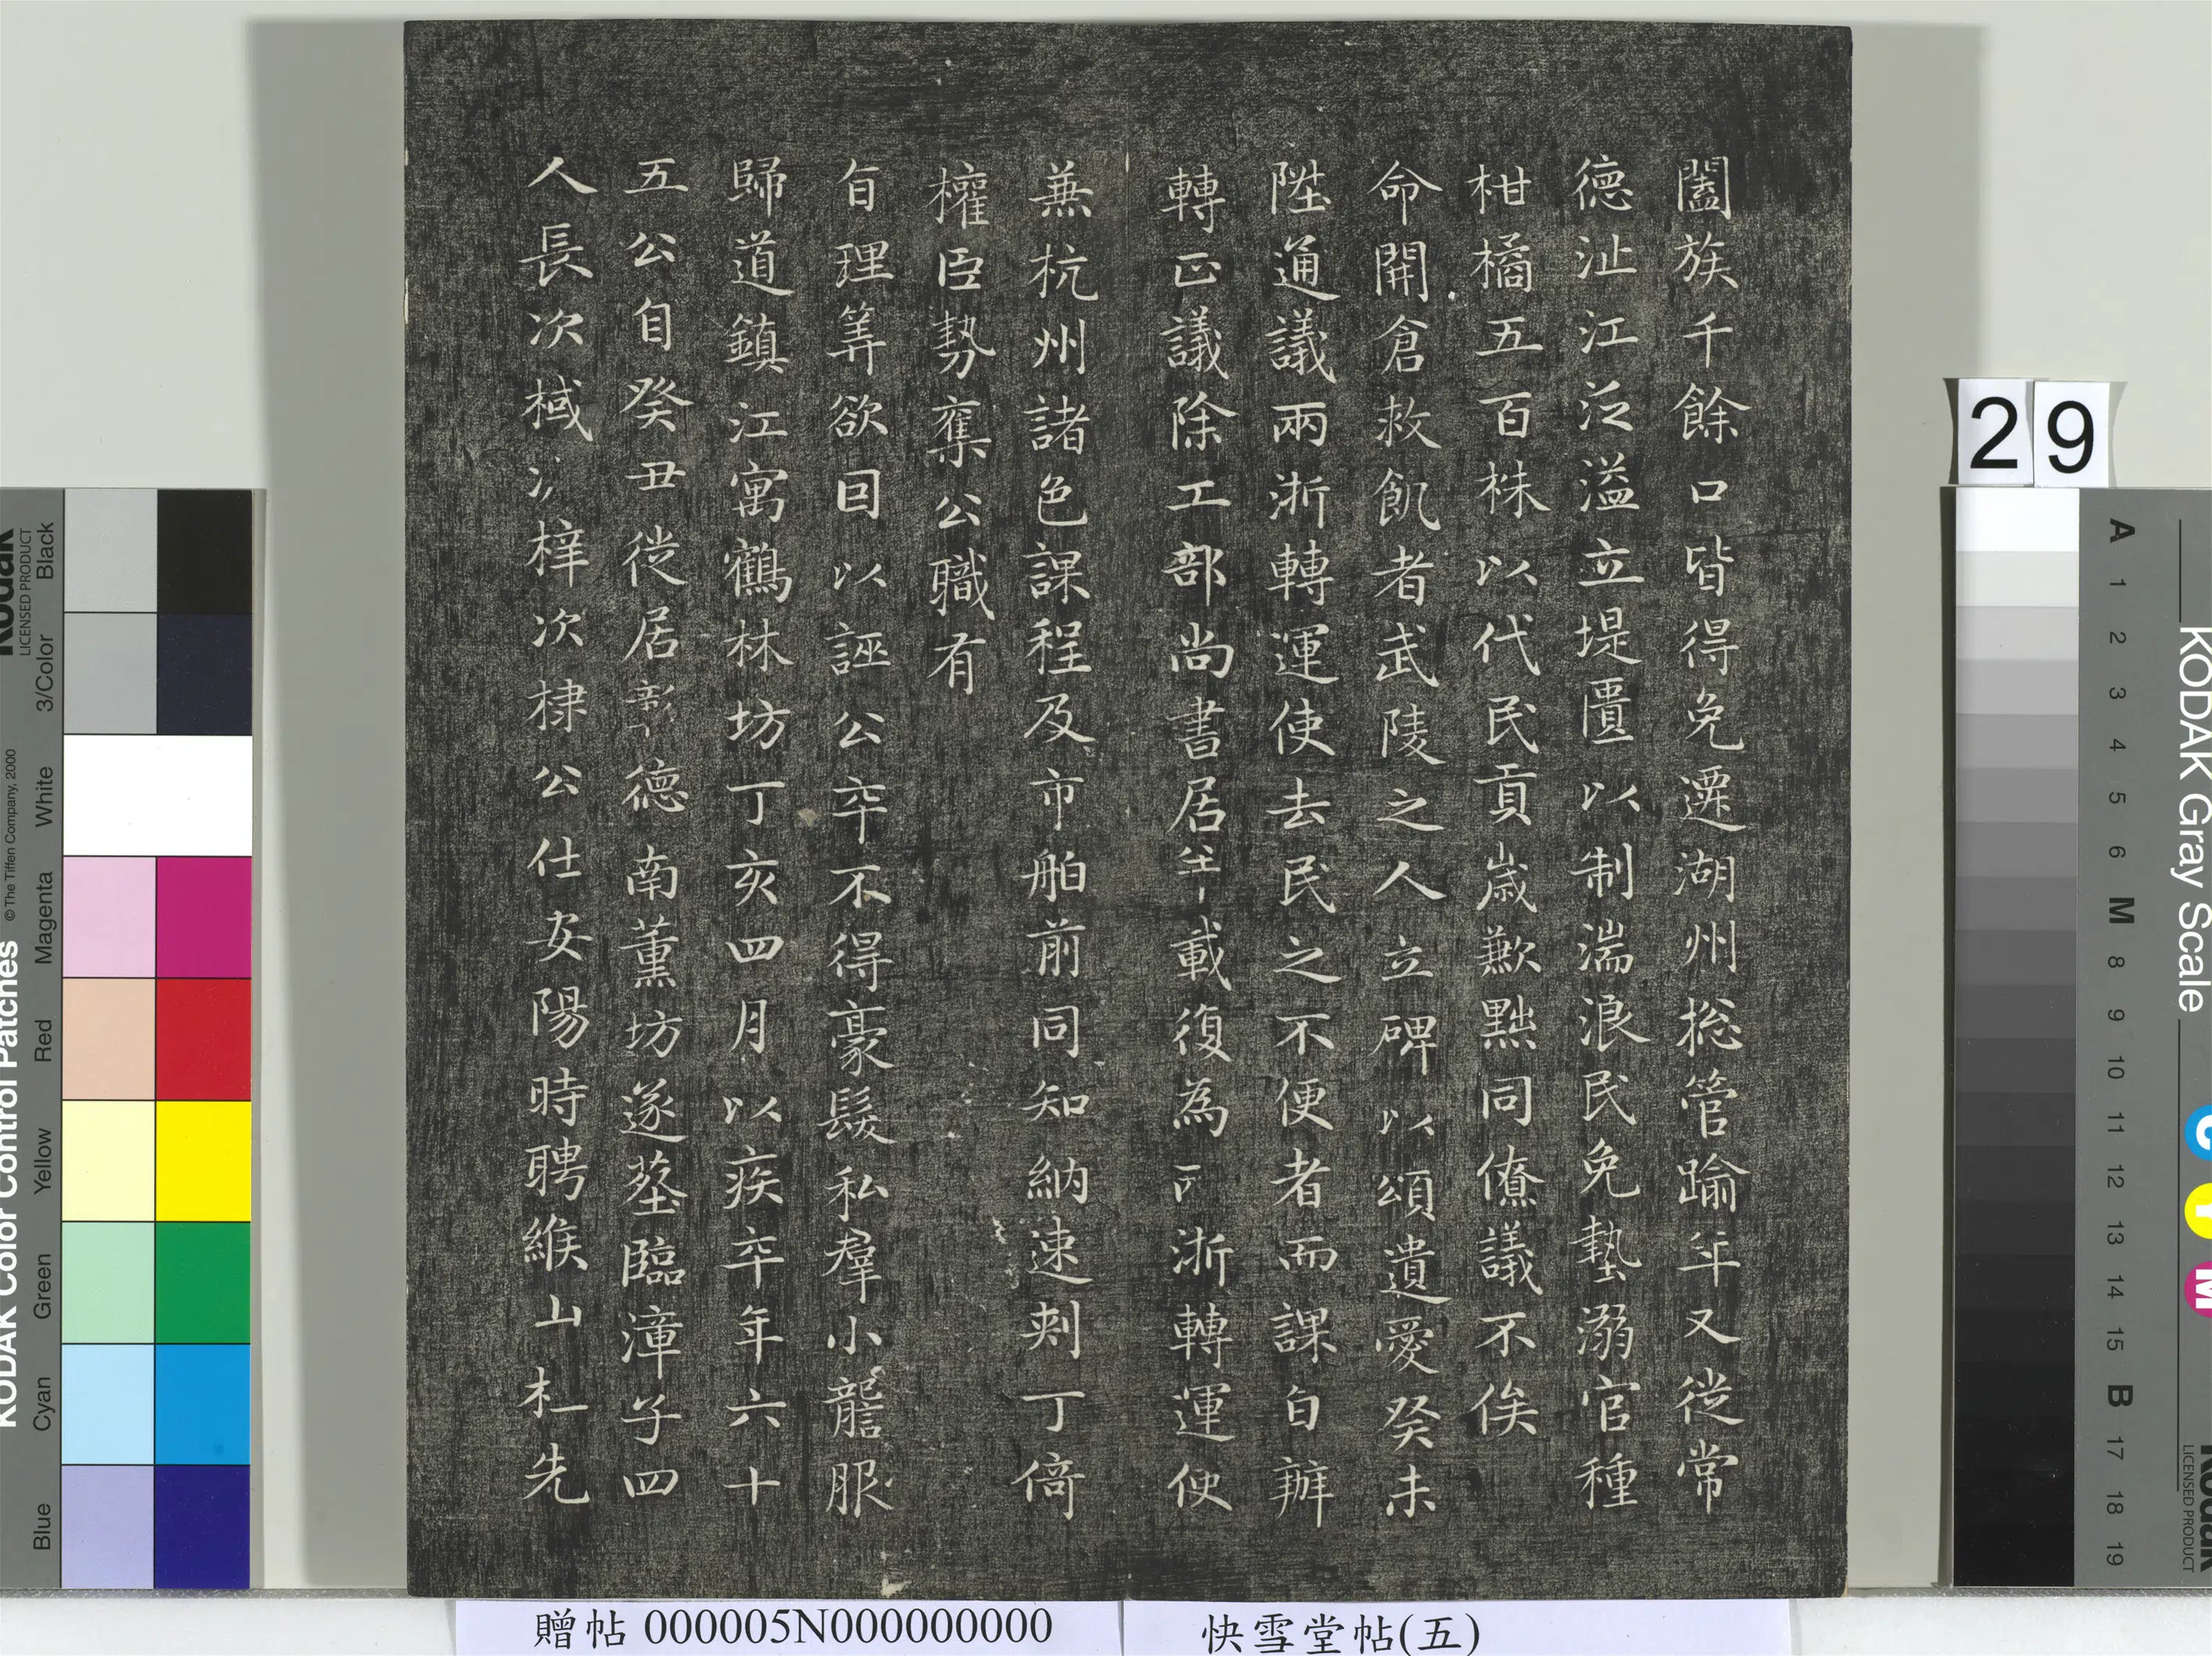 闔族千餘口皆得免遷湖州捴管踰年又從常
德沚江泛溢立堤匱以制湍浪民免墊溺官種
柑橘五百株以代民貢歲歉點同僚議不俟
命開倉救飢者武陵之人立碑以頌遺愛癸未
陞通議兩浙轉運使去民之不便者而課自辦
轉正議除工部尚書居半載復為兩浙轉運使
兼杭州諸色課程及市舶前同知納速剌丁倚
權臣勢奪公職有
旨理筭欲回以誣公卒不得豪髮私羣小讋服
歸道鎮江寓鶴林坊丁亥四月以疾卒年六十
五公自癸丑徙居彰德南薰坊遂塟臨漳子四
人長次棫次梓次棣公仕安陽時聘緱山杜先
贈帖 000005N000000000
快雪堂帖(五)
29
KODAK Color Control Patches
© The Tiffen Company, 2000
Kodak
LICENSED PRODUCT
Blue Cyan Green Yellow Red Magenta White 3/Color Black
KODAK Gray Scale
C Y M
Kodak
LICENSED PRODUCT
A 1 2 3 4 5 6 M 8 9 10 11 12 13 14 15 B 17 18 19